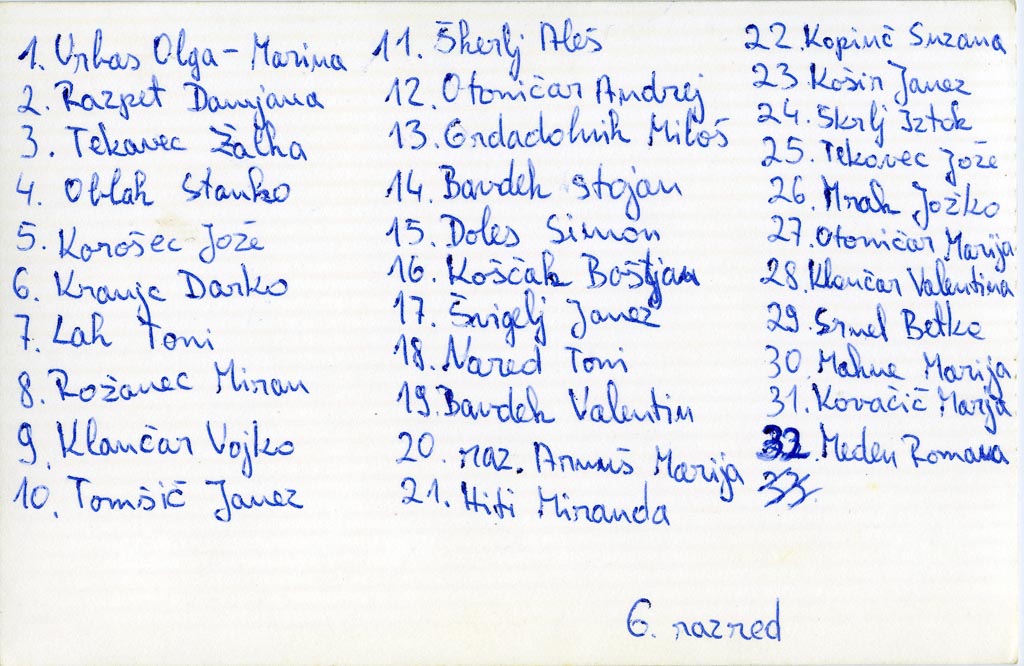 1. Urbas Olga-Marina
2. Razpet Damjana
3. Tekavec Žalka
4. Oblak Stanko
5. Korošec Jože
6. Kranjc Darko
7. Lah Toni
8. Rožanec Miran
9. Klančar Vojko
10. Tomšič Janez
11. Škerlj Aleš
12. Otoničar Andrej
13. Grdadolnik Miloš
14. Bavdek Stojan
15. Doles Simon
16. Koščak Boštjan
17. Švigelj Janez
18. Nared Toni
19. Bavdek Valentin
20. raz. Marija
21. Hiti Miranda
22. Kopinč Suzana
23. Košir Janez
24. Škrlj Iztok
25. Tekavec Jože
26. Mrak Jožko
27. Otoničar Marija
28. Klančar Valentina
29. Srnel Betka
30. Mahne Marija
31. Kovačič Marja
32. Meden Romana
33.
6. razred